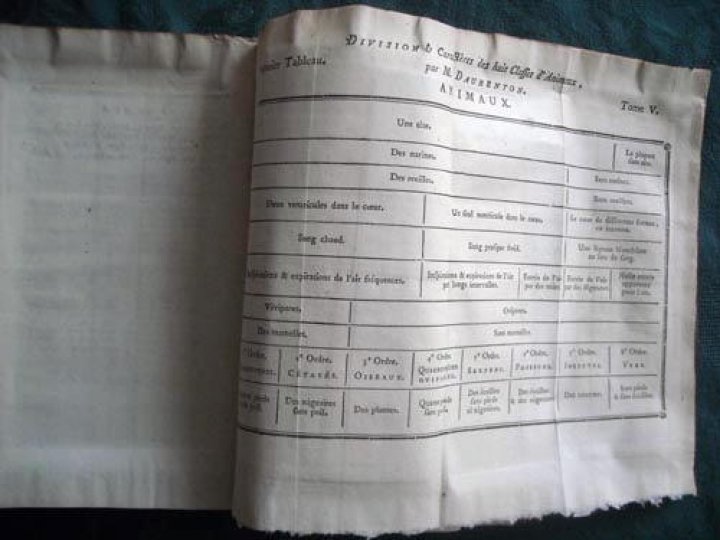 DIVISION & Caractères des huit Classes d'Animaux,
par M. DAUBENTON.
Tableau. Tome V.
ANIMAUX.
Une tête.
Des narines. La plupart
sans
Des oreilles. Sans
Sans oreilles.
Deux ventricules dans le cœur. Un seul ventricule dans le cœur. Le cœur de différentes formes,
ou inconnu.
Sang chaud. Sang presque froid. Une liqueur blanchâtre
au lieu de sang.
Inspirations & expirations de l'air fréquentes. Inspirations & expirations de l'air
par longs intervalles. Entrée de l'air
par des ouïes. Entrée de l'air
par des stigmates. Nulle entrée
apparente
pour l'air.
Vivipares. Ovipares.
Des mamelles. Sans mamelles.
Ordre. 2e Ordre. 3e Ordre. 4e Ordre. Ordre. Ordre. Ordre. Ordre.
CÉTACÉS. OISEAUX. QUADRUPÈDES
OVIPARES. SERPENS. POISSONS. INSECTES. VERS.
pieds
poil. Des nageoires
sans poil. Des plumes. Quatre pieds
sans poils. Des écailles
sans pieds
ni nageoires. Des écailles
& des nageoires. Des antennes. Sans pieds
& sans écailles.